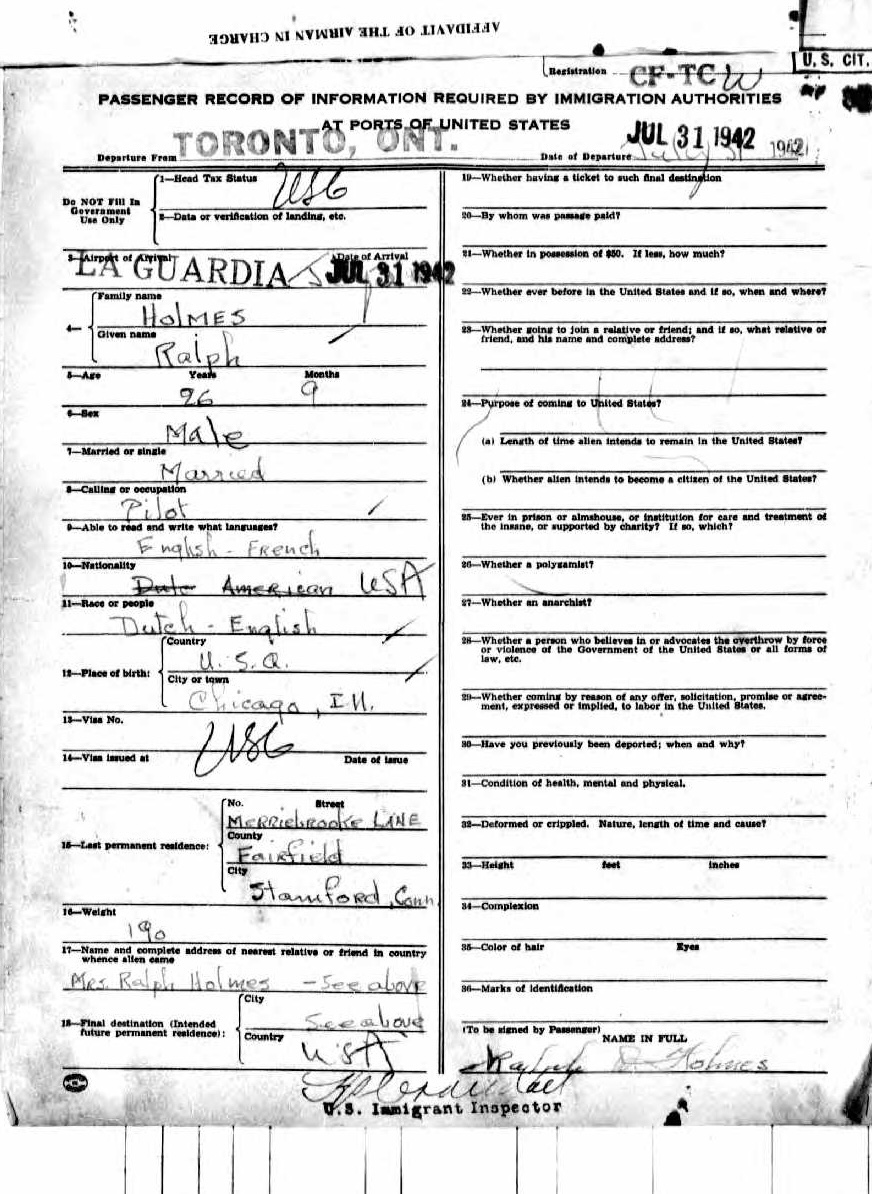 AFFIDAVIT OF THE AIRMAN IN CHARGE
U. S. CIT.
Registration CF-TCW
PASSENGER RECORD OF INFORMATION REQUIRED BY IMMIGRATION AUTHORITIES
AT PORTS OF UNITED STATES
Departure From TORONTO, ONT.
Date of Departure JUL 31 1942 July 31 1942
Do NOT Fill In
Government
Use Only
1—Head Tax Status USC
2—Data or verification of landing, etc.
3—Airport of Arrival LA GUARDIA
Date of Arrival JUL 31 1942
4— Family name
HOLMES
Given name
Ralph
5—Age Years Months
26 9
6—Sex
Male
7—Married or single
Married
8—Calling or occupation
Pilot
9—Able to read and write what languages?
English - French
10—Nationality
American USA
11—Race or people
Dutch - English
12—Place of birth: Country
U.S.A.
City or town
Chicago, Ill.
13—Visa No.
USC
14—Visa issued at Date of issue
15—Last permanent residence: No. Street
MERRIEBROOKE LANE
County
Fairfield
City
Stamford, Conn.
16—Weight
190
17—Name and complete address of nearest relative or friend in country
whence alien came
Mrs. Ralph Holmes - See above
18—Final destination (Intended
future permanent residence): City
See above
Country
USA
U.S. Immigrant Inspector
19—Whether having a ticket to such final destination
20—By whom was passage paid?
21—Whether in possession of $50. If less, how much?
22—Whether ever before in the United States and if so, when and where?
23—Whether going to join a relative or friend; and if so, what relative or
friend, and his name and complete address?
24—Purpose of coming to United States?
(a) Length of time alien intends to remain in the United States?
(b) Whether alien intends to become a citizen of the United States?
25—Ever in prison or almshouse, or institution for care and treatment of
the insane, or supported by charity? If so, which?
26—Whether a polygamist?
27—Whether an anarchist?
28—Whether a person who believes in or advocates the overthrow by force
or violence of the Government of the United States or all forms of
law, etc.
29—Whether coming by reason of any offer, solicitation, promise or agree-
ment, expressed or implied, to labor in the United States.
30—Have you previously been deported; when and why?
31—Condition of health, mental and physical.
32—Deformed or crippled. Nature, length of time and cause?
33—Height feet inches
34—Complexion
35—Color of hair Eyes
36—Marks of identification
(To be signed by Passenger)
NAME IN FULL
Ralph Holmes